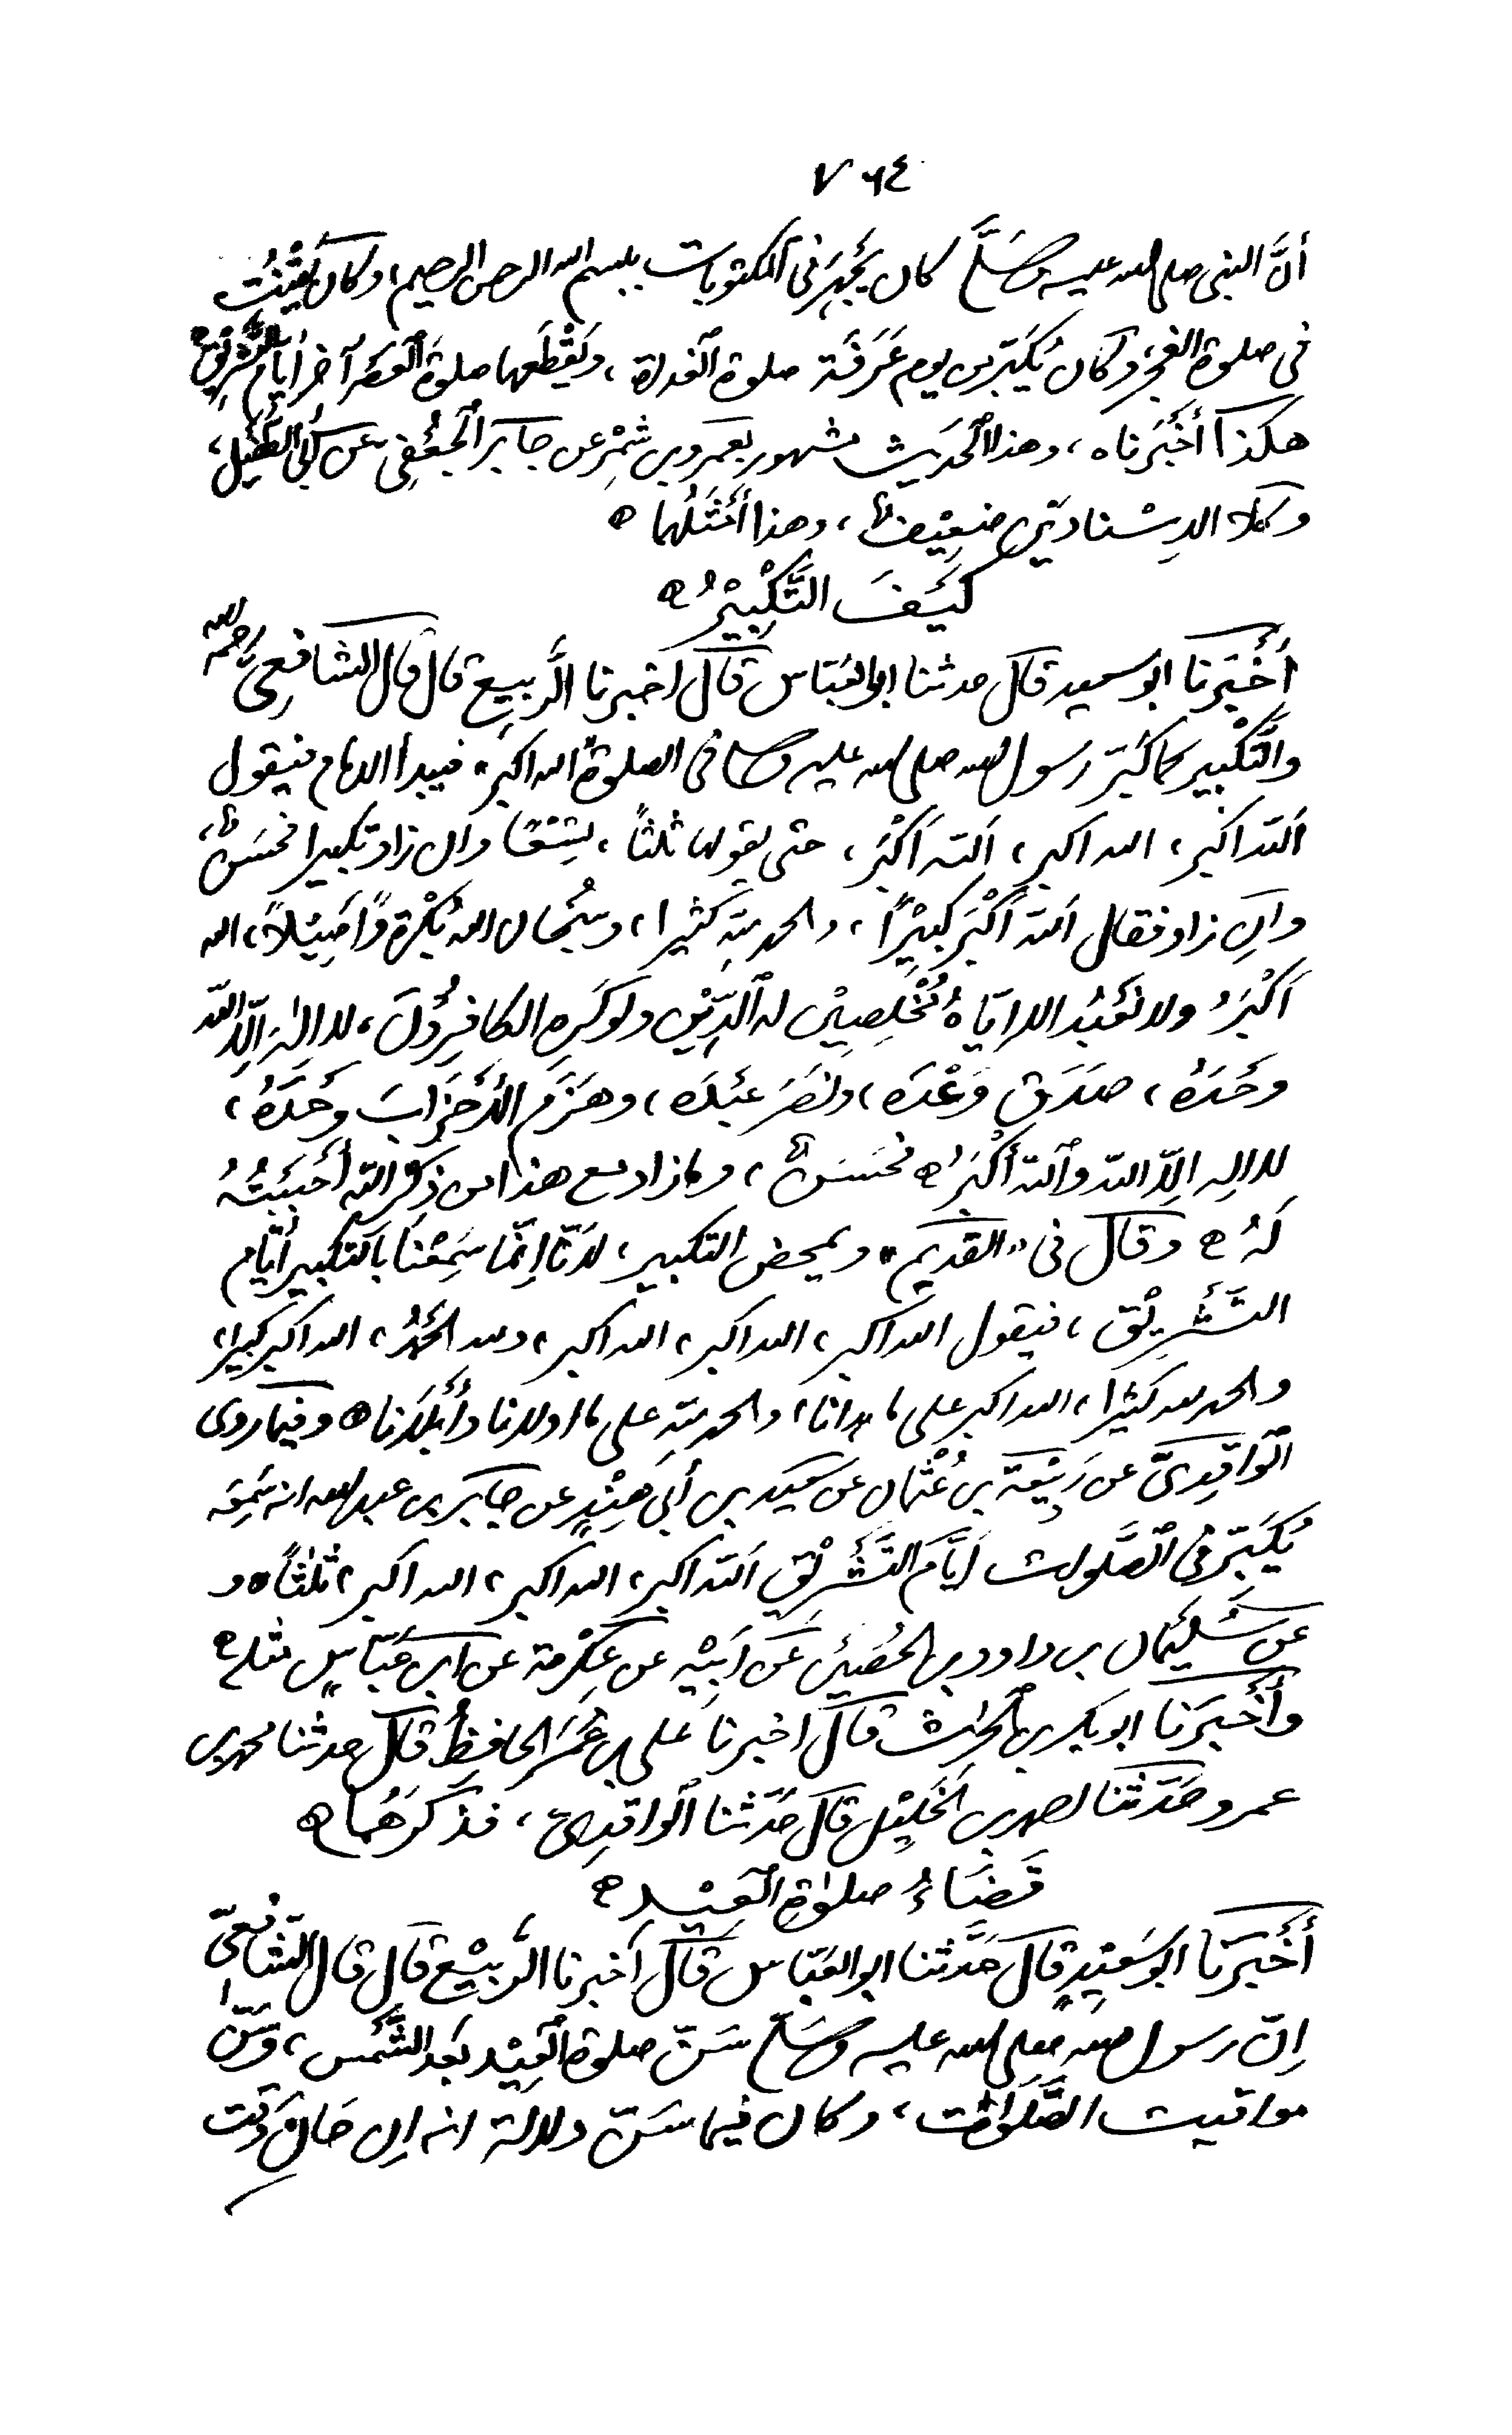 ٧٦٤
أنَّ النبی صلی الله علیه وسَلَّمَ کان یَجْهَرُ فی المکتوبات ببسم الله الرحمن الرحیم، وکان یَقْنُتُ
فی صلوة الفجر، وکان یُکَبِّر من یوم عَرَفَة صلوة الغداة، ویَقْطَعها صلوةَ العصر آخر أیّامِ التَّشْرِیْقِ
هکذا أَخْبَرناه، وهذا الحدیث مشهور بعمرو بن شِمْر عن جابر الجُعْفِی عن أبی الطُّفَیْلِ،
وکلا الإِسْنادَیْنِ ضَعِیْفٌ، وهذا أَمْثَلُهُما ه
کَیْفَ التَّکْبِیْرُ ه
أَخْبَرَنا ابو سعید قال حدثنا ابو العَبّاس قال اخبرنا الرَّبیع قال قال الشافِعِی رحمه الله
والتَّکْبِیر کما کَبَّرَ رسول الله صلی الله علیه وسلم فی الصلوة "الله اکبر" فیبدأ الامام فیقول
اَلله اکبر، الله اکبر، اَلله اَکْبَر، حتی یقولها ثلثاً، نَسَقًا وان زاد تکبیرا فحَسَنٌ،
وإن زاد فقال اَلله أَکْبَر کَبِیْرًا، والحمد للّه کثیرا، وسُبْحان الله بُکْرة وًّاَصِیْلاً، الله
اَکْبَرُ ولا نَعْبُدُ الا اِیّاهُ مُخْلِصِیْن له الدِّیْن ولو کَرِه الکافِرُوْنَ، لا اِلٰهَ اِلّا اللّه
وحْدَهُ، صدَقَ وَعْدَه، ونَصَرَ عَبْدَه، وهَزَم الأَحْزَابَ وَحْدَهُ،
لا اله اِلّا الله والله أَکْبَرُ ه فحَسَنٌ، وما زاد مع هذا من ذِکْر الله أَحْبَبْتُهُ
لَهُ ه وقال فی "القَدیم" ویمحض التکبیر، لأنّا اِنّما سَمِعْنَا بالتکبیر أَیّام
التَّشْرِیْق، فیقول الله اکبر، الله اکبر، الله اکبر، ولله الحَمْدُ، الله اکبر کبیرا،
والحمد لله کثیرا، الله اکبر علی ما هدانا، والحمد للّه علی ما اولانا وأَبْلانا ه وفیما روی
الواقِدِیّ عن رَبِیْعَة بن عُثْمان عن سعید بن أبی هِنْدٍ عن جابر بن عبد الله انه سَمِعَه
یُکَبِّر فی الصَّلوات اَیَّامَ التَّشْرِیْقِ اَلله اکبر، الله اکبر، الله اکبر، ثلثاً ه و
عن سُلَیْمان بن داود بن الحُصَیْن عَن اَبِیْه عن عِکْرِمة عن ابن عَبّاسٍ مثله ه
وأَخْبَرَنا ابو بکر بن الحرث قال اخبرنا عَلی بن عُمَرَ الحافِظُ قال حدثنا محمد بن
عمرو حَدَّثنا احمد بن الخَلِیْل قال حَدَّثنا الواقِدِیّ، فذکَرَهُما ه
قَضَاءُ صلٰوةِ العِیْدِ ه
أَخْبَرَنا ابو سَعِیْدٍ قال حَدَّثنا ابو العَبّاس قال اَخبرنا الرَّبِیْع قال قال الشافعیّ
اِنّ رسول الله صلی الله علیه وسَلّم سَنّ صلوةَ العِیْدِ بَعد الشَّمْس، وسَنّ
مواقیت الصَّلَوات، وکان فیما سَنّ دلالة انه اِن حَانَ وَقت